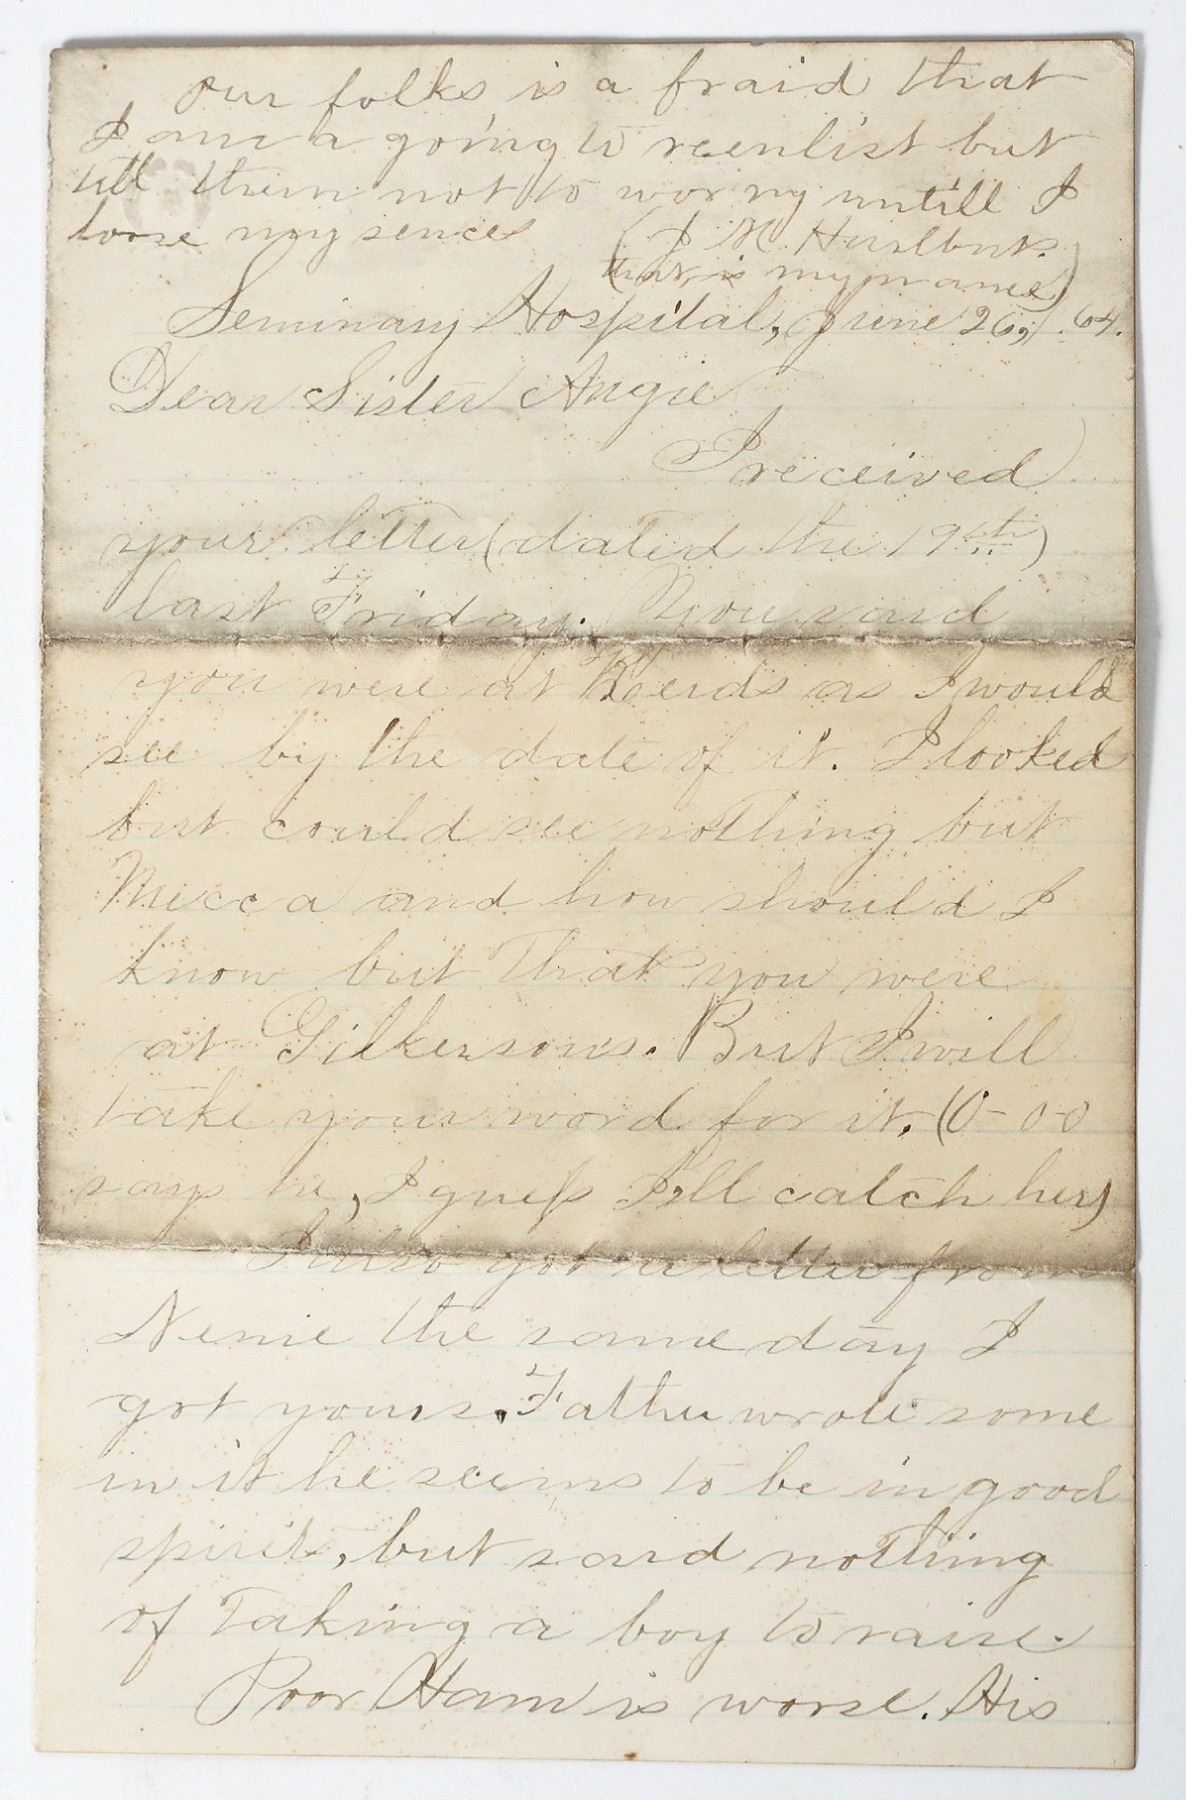 our folks is a fraid that
I am a going to reenlist but
tell them not to worry untill I
loose my sences (J M Hurlbuts.
that is my name)
Seminary Hospital, June 26, 64.
Dear Sister Angie
I received
your letter (dated the 19th)
last Friday. You said
you were at as I would
see by the date of it. I looked
but could see nothing but
Mecca and how should I
know but that you were
at Gilkersons. But I will
take your word for it. (O-oo
says he, I guess I'll catch her)
I also got a letter from
Nenie the same day I
got yours. Father wrote some
in it he seems to be in good
spirit, but said nothing
of taking a boy to raise.
Poor Ham is worse. His